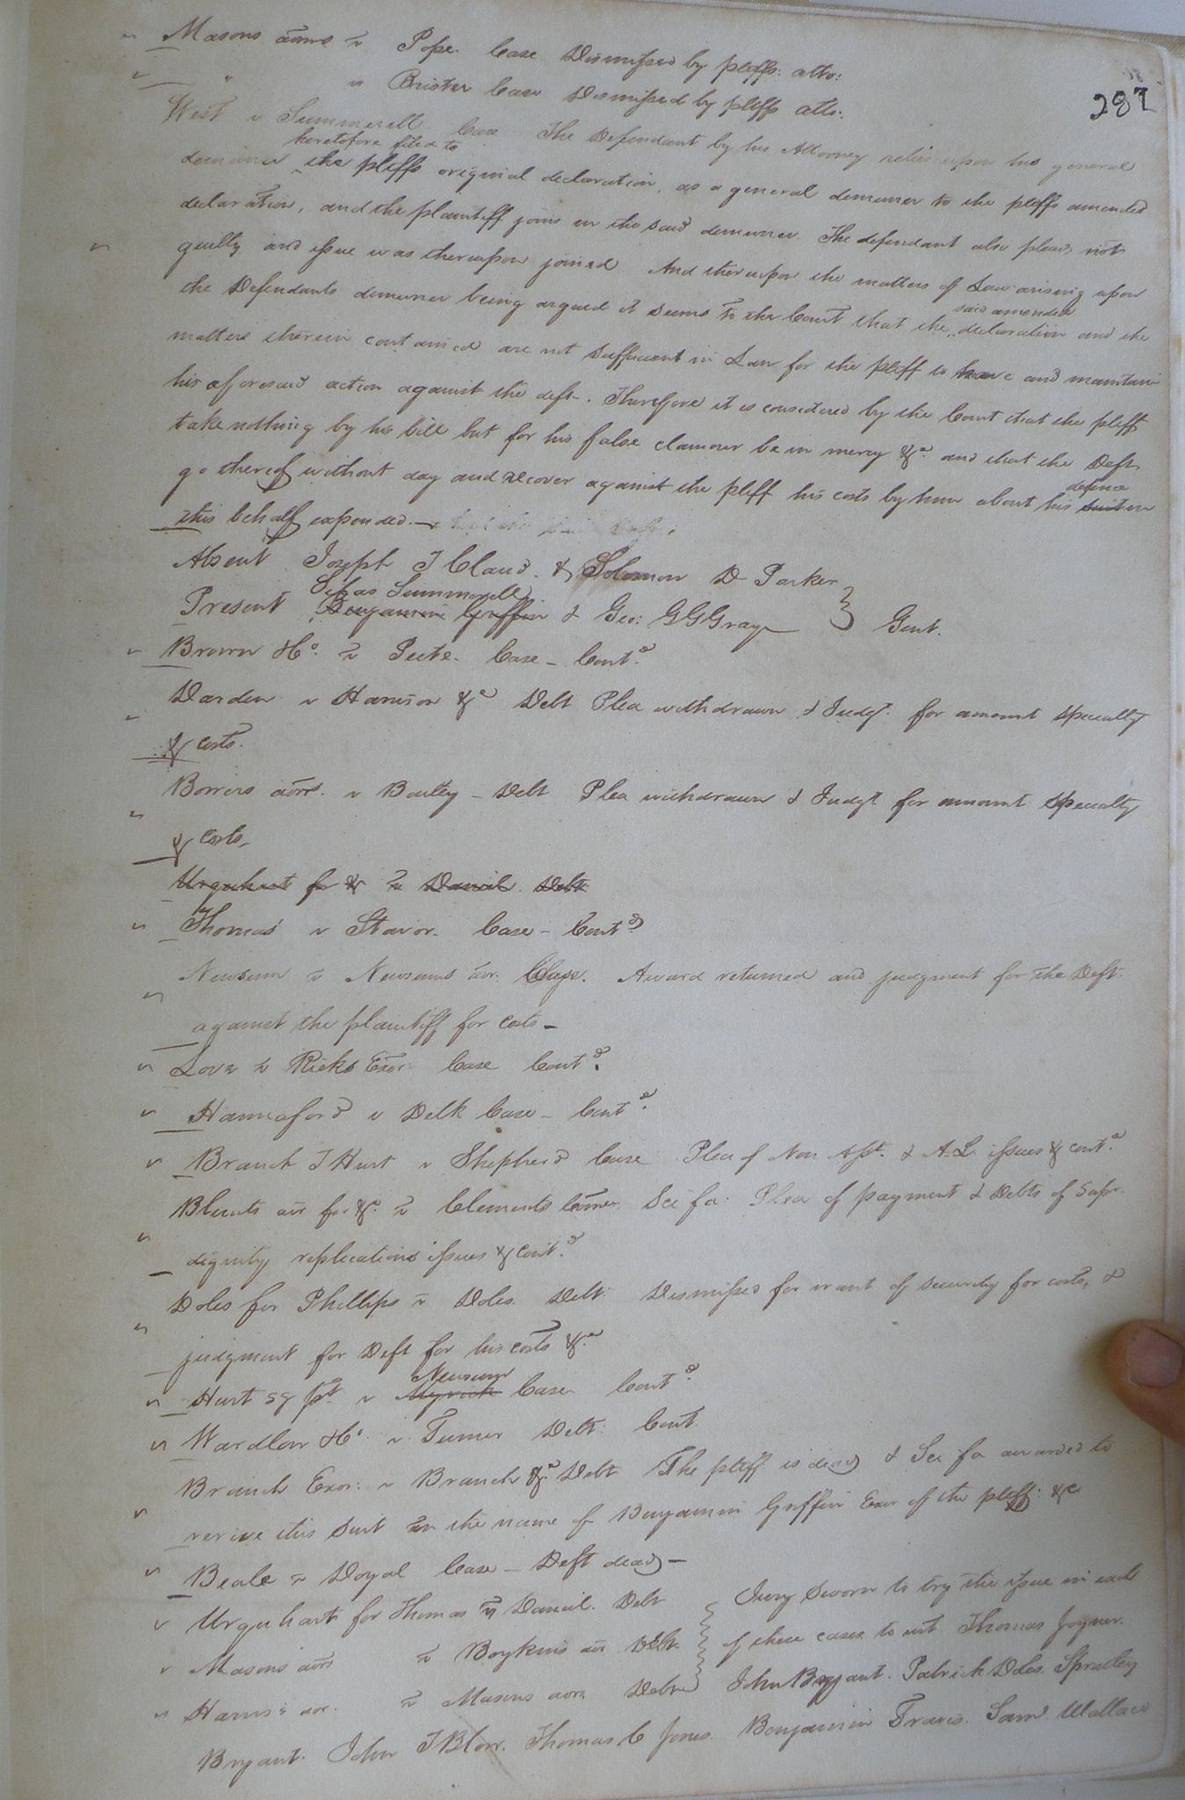 287
Masons admrs v Pope. Case Dismissed by pltffs: atto:
" v Brister Case Dismissed by pltffs atto:
West v Summerell Case The Defendant by his Attorney relies upon his general
heretofore filed to
demurrer the pltffs original declaration, as a general demurrer to the pltffs amended
declaration, and the plaintiff joins in the said demurrer. The defendant also pleads not
guilty and issue was thereupon joined And thereupon the matters of Law arising upon
said amended
the Defendants demurrer being argued it seems to the Court that the declaration and the
matters therein contained are not sufficient in Law for the pltff to have and maintain
his aforesaid action against the deft. Therefore it is considered by the Court that the pltff
take nothing by his bill but for his false clamour be in mercy &c. and that the Deft
defence
go thereof without day and recover against the pltff his costs by him about his suit in
this behalf expended.—
Absent Joseph T Claud & Solomon D Parker
Silas Summerell
Present Benjamin Griffin & Geo: GGGray } Gent.
Brown & Co. v Peete. Case – Contd
Darden v Harrison &c Debt Plea withdrawn & Judgt. for amount specialty
& costs.
v Debt Plea withdrawn & Judgt for amount specialty
& Costs,
Urquhart for & v Daniel. Debt
Thomas v Case – Contd
Newsum v Newsums Case. Award returned and judgment for the Deft.
against the plaintiff for costs –
Love v Ricks Exor. Case Contd.
Hannaford v Delk Case – Contd.
Branch T Hurt v Shepherd Case Plea of Non Asst. & A.L. issues & contd.
Blunts for &c. v Clements Sci fa. Plea of payment & Debts of Supr.
dignity replications issues & Contd.
Doles for Phillips v Doles. Debt. Dismissed for want of security for costs, &
judgment for Deft for his costs &c
Newsum
Hurt v Myrick Case Contd
Wardlow & Co. v Turner Debt. Cont.
Branch Exor: v Branch &c. Debt The pltff is dead & Sci fa awarded to
revive this Suit in the name of Benjamin Griffin Exor of the pltff. &c
Beale v Doyal Case – Deft dead –
Urquhart for Thomas v Daniel. Debt } Jury Sworn to try the issue in each
Masons v Boykins Debt } of these cases to wit Thomas Joyner.
Harris v Masons Debt } John Bryant. Patrick Doles. Spratley
Bryant. John T Blow. Thomas C Jones. Benjamin Travis. Saml Wallace